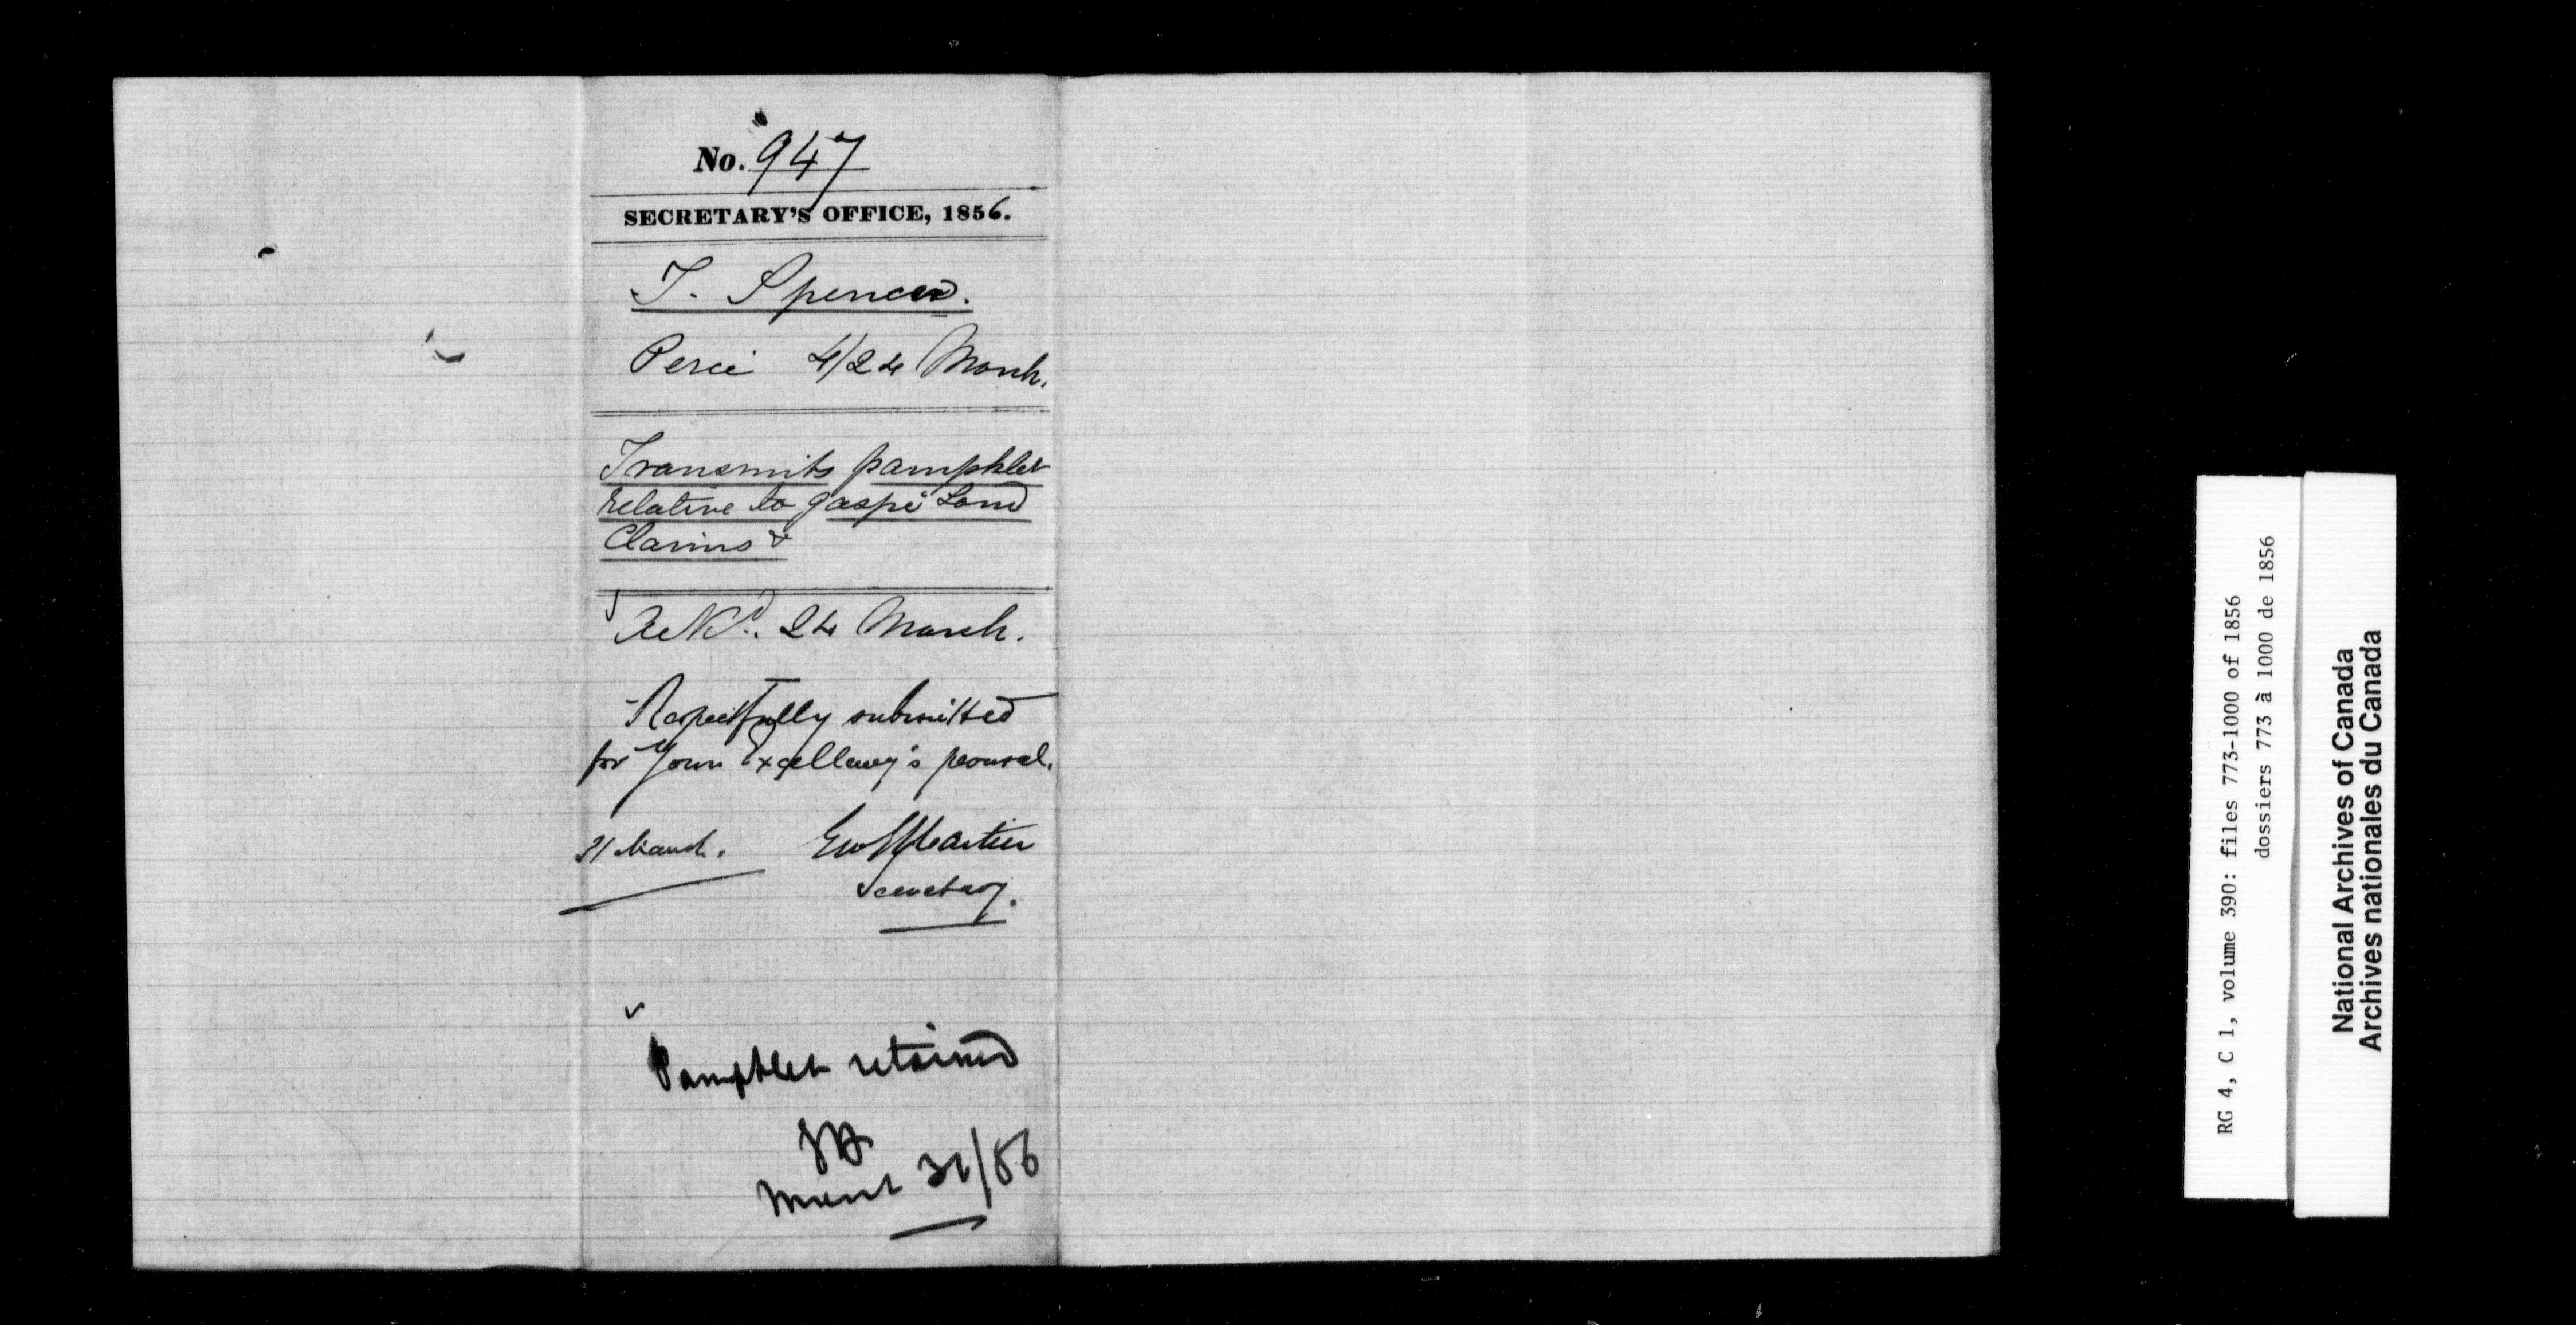 No. 947
SECRETARY'S OFFICE, 1856.
T. Spencer.
Percé 4/24 March.
Transmits pamphlet
relative to Gaspé Land
Claims &
Ack'd. 24 March.
Respectfully submitted
for Your Excellency's perusal.
21 March. Geo E Cartier
Secretary.
Pamphlet retained
March 31/56
RG 4, C 1, volume 390: files 773-1000 of 1856
dossiers 773 à 1000 de 1856
National Archives of Canada
Archives nationales du Canada